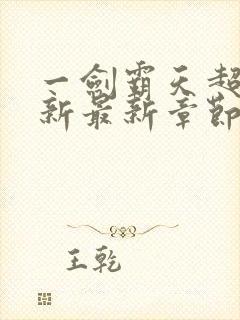 一剑霸天超
新最新章節
王乾